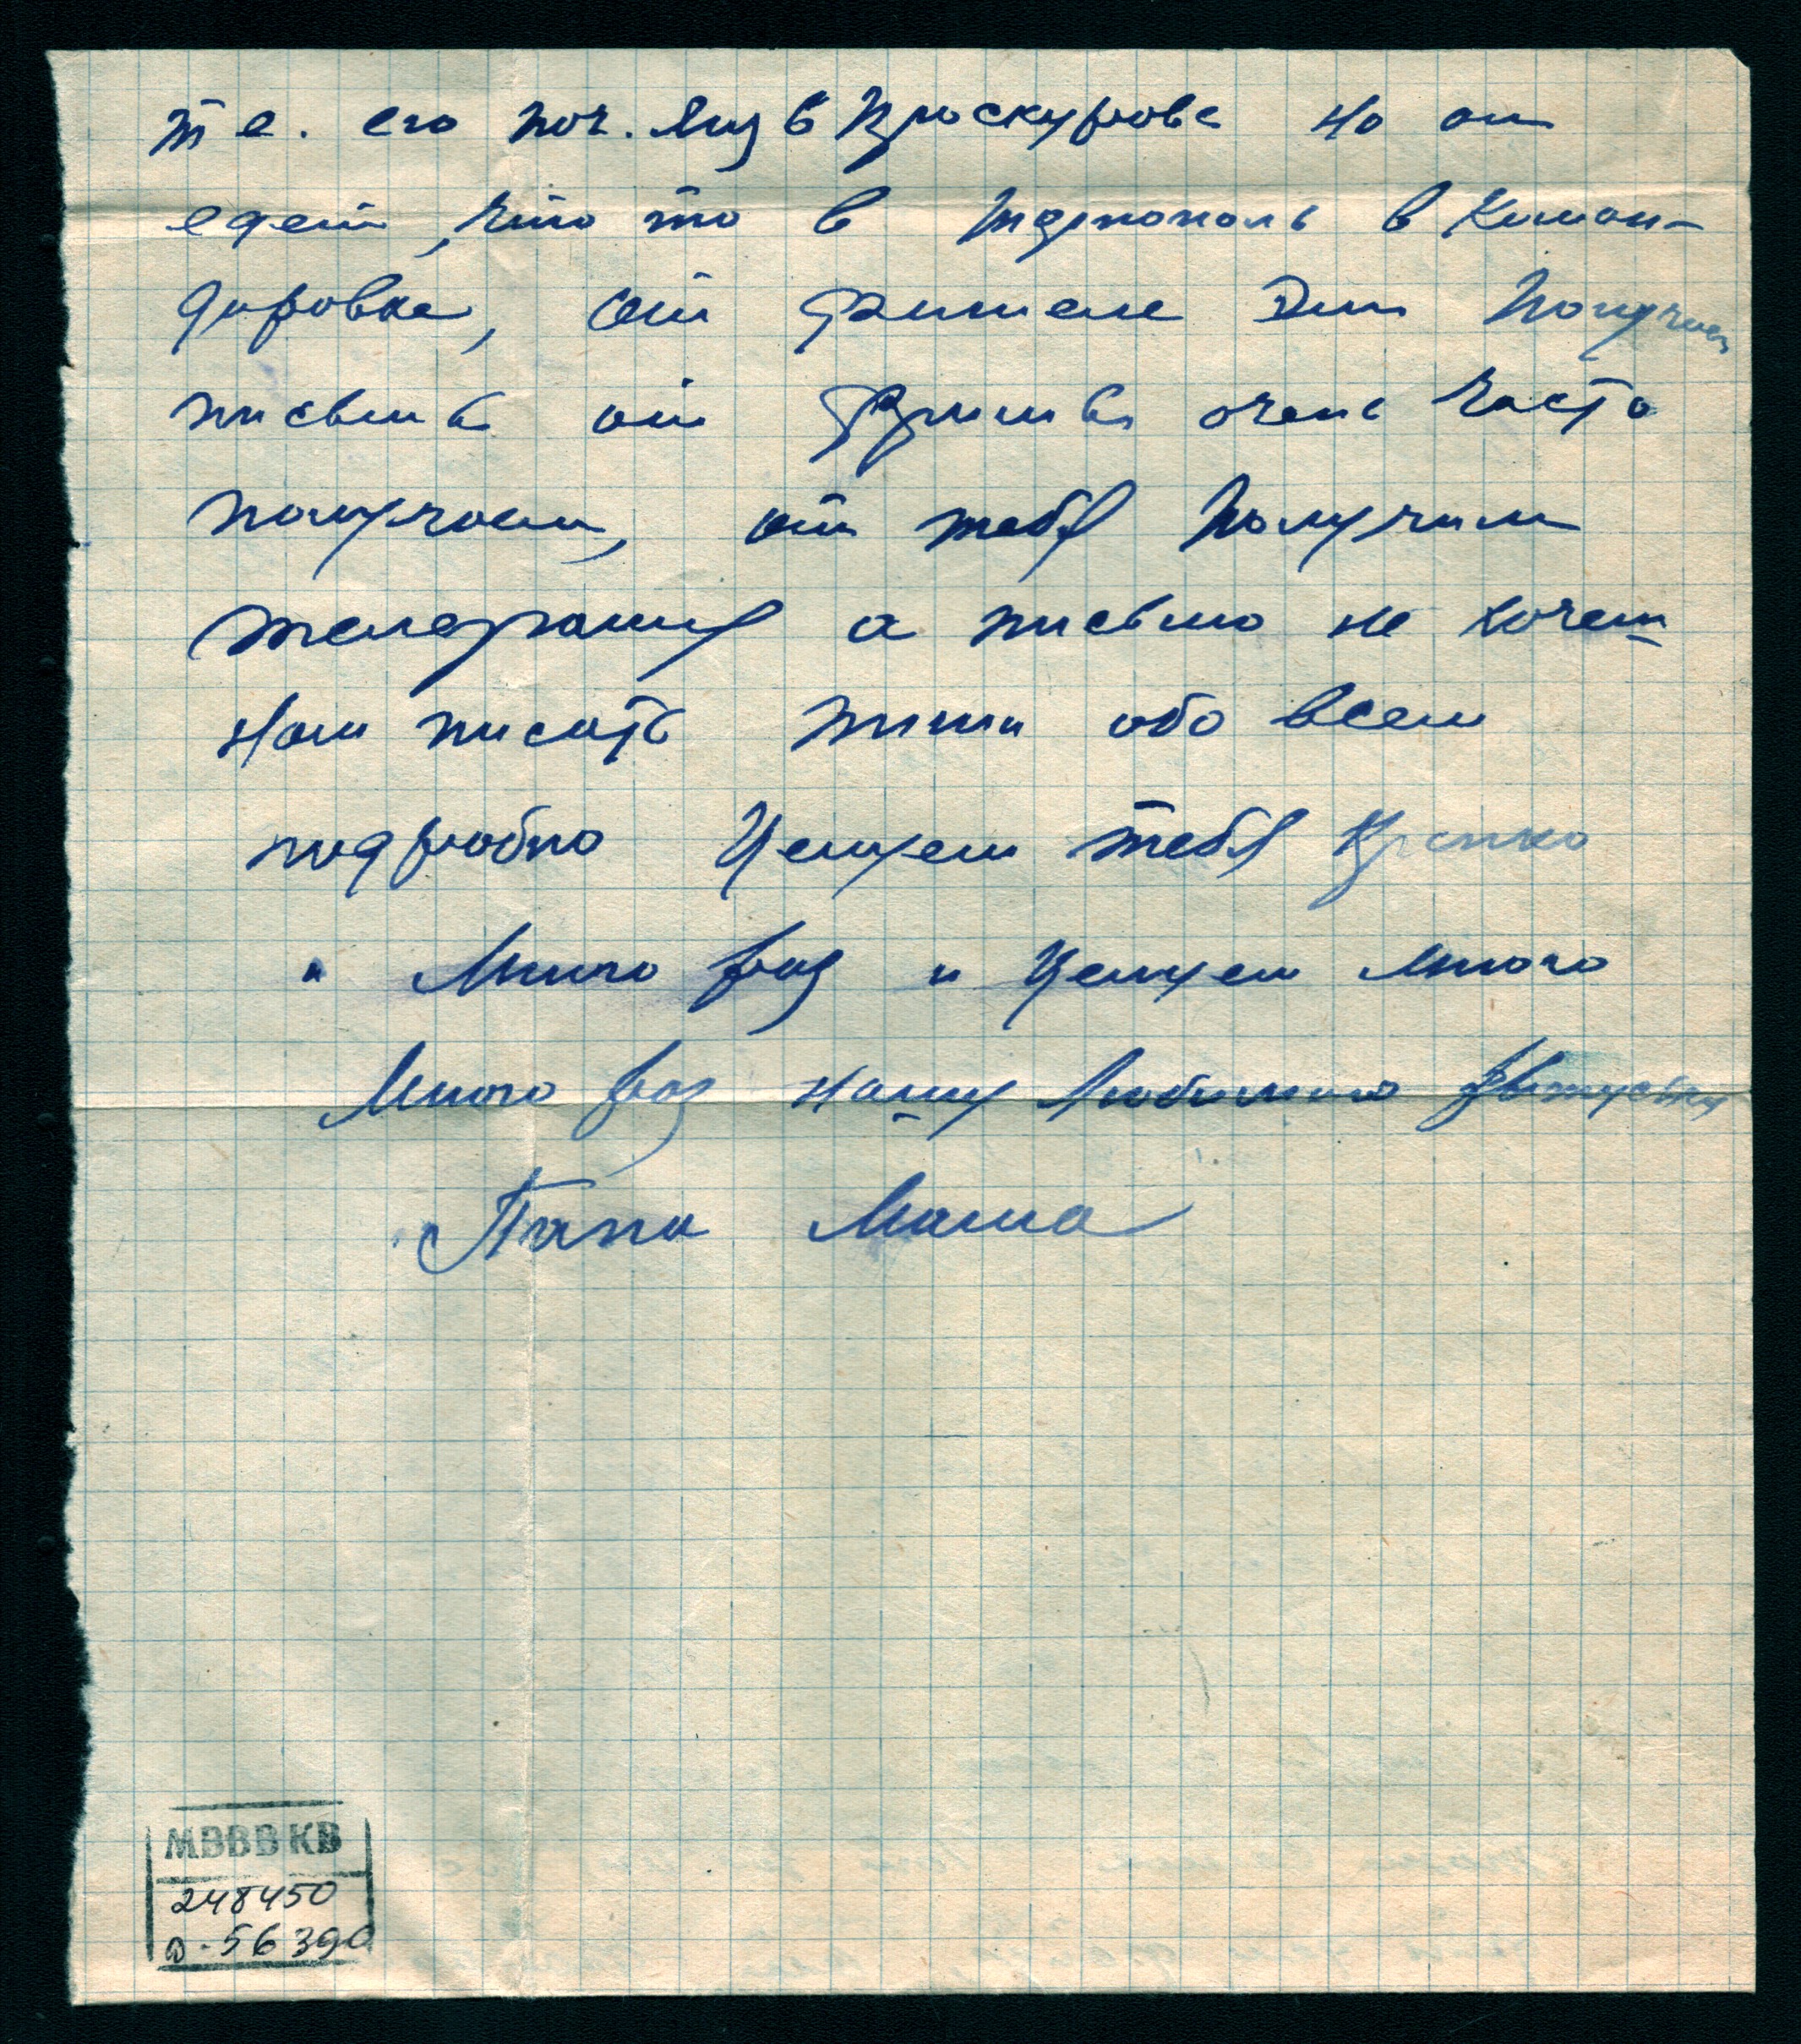 те. его поч. Янз в Проскурове но он
едет, что то в Тарнополь в коман-
дировке, от Гришеле Зин получаем
письмы от Гришы очень часто
получаем, от тебя получили
телеграмму а письмо не хочеш
нам писать пиши обо всем
подробно Целуем тебя крепко
и Много раз и Целуем много
Много раз нашу Любимого
Папа Мама
МВВВ КВ
248450
д-56390